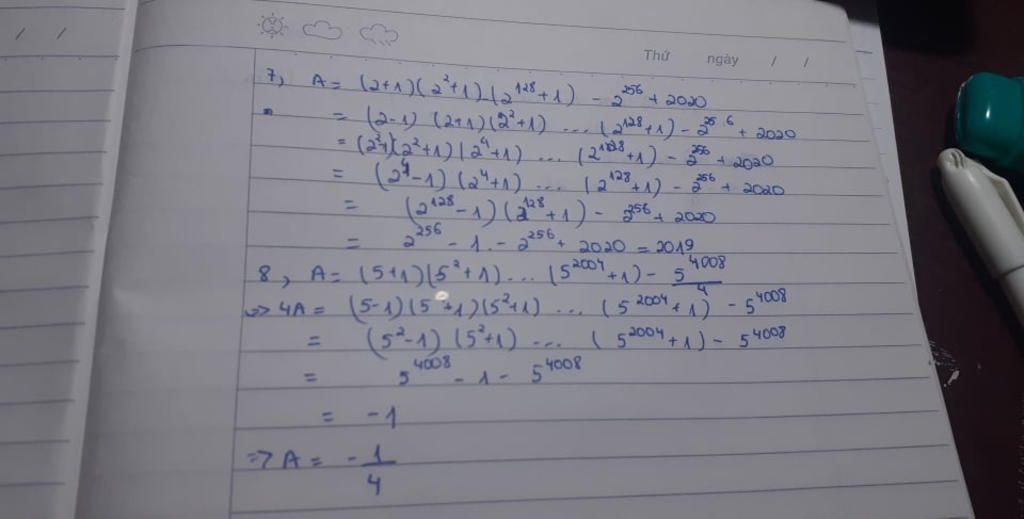 Thứ ngày / /
7, A = (2+1)(2²+1)...(2¹²⁸+1) - 2²⁵⁶ + 2020
= (2-1) (2+1)(2²+1) ... (2¹²⁸+1) - 2²⁵⁶ + 2020
= (2²-1)(2²+1)(2⁴+1) ... (2¹²⁸+1) - 2²⁵⁶ + 2020
= (2⁴-1)(2⁴+1) ... (2¹²⁸+1) - 2²⁵⁶ + 2020
= (2¹²⁸-1)(2¹²⁸+1) - 2²⁵⁶ + 2020
= 2²⁵⁶ - 1 - 2²⁵⁶ + 2020 = 2019
8, A = (5+1)(5²+1)...(5²⁰⁰⁴+1) - 5⁴⁰⁰⁸/4
=> 4A = (5-1)(5+1)(5²+1) ... (5²⁰⁰⁴+1) - 5⁴⁰⁰⁸
= (5²-1)(5²+1) ... (5²⁰⁰⁴+1) - 5⁴⁰⁰⁸
= 5⁴⁰⁰⁸ - 1 - 5⁴⁰⁰⁸
= -1
=> A = -1/4